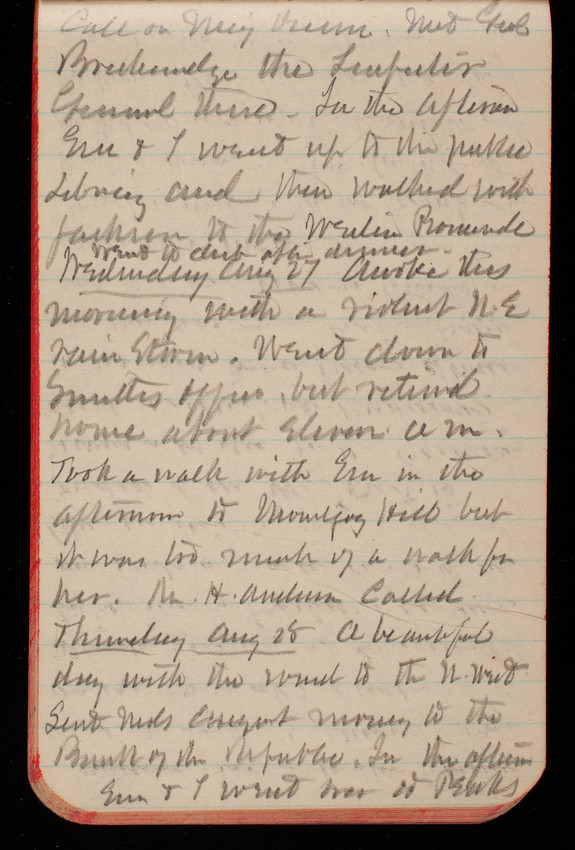 Call on . Met Genl
Breckenridge the Inspector
General there. In the afternoon
Em & I went up to the public
Library and then walked with
Jackson to the Promenade
Went to club after dinner.
Wednesday Aug 27 Awoke this
morning with a violent N.E
rain storm. Went down to
Smiths office, but retired
home about Eleven a m.
Took a walk with Em in the
afternoon to Hill but
it was too much of a walk for
her. H. Anderson Called
Thursday Aug 28 A beautiful
day with the wind to the N. West
Sent Neds August money to the
Bank of the Republic. In the afternoon
Em & I went over to Peaks